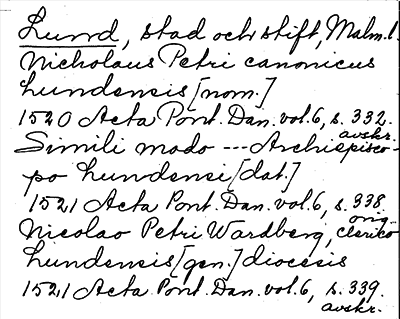 Lund, stad och stift, Malm.l.
Nicholaus Petri canonicus
Lundensis [nom.]
1520 Acta Pont. Dan. vol. 6, s. 332.
avskr.
Simili modo --- Archiepisco-
po Lundensi [dat.]
1521 Acta Pont. Dan. vol. 6, s. 338.
orig.
Nicolao Petri Wardberg, clerico
Lundensis [gen.] diocesis
1521 Acta Pont. Dan. vol. 6, s. 339.
avskr.